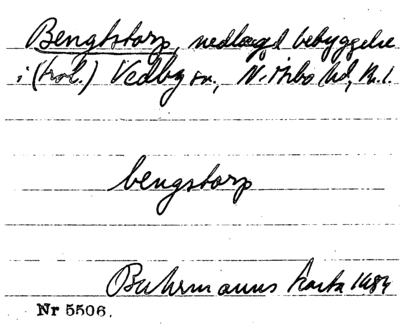 Bengtstorp, nedlagd bebyggelse
i (trol.) Vedby sn, N. Åsbo hd, K. l.
bengstorp
Buhrmanns karta 1684
Nr 5506.